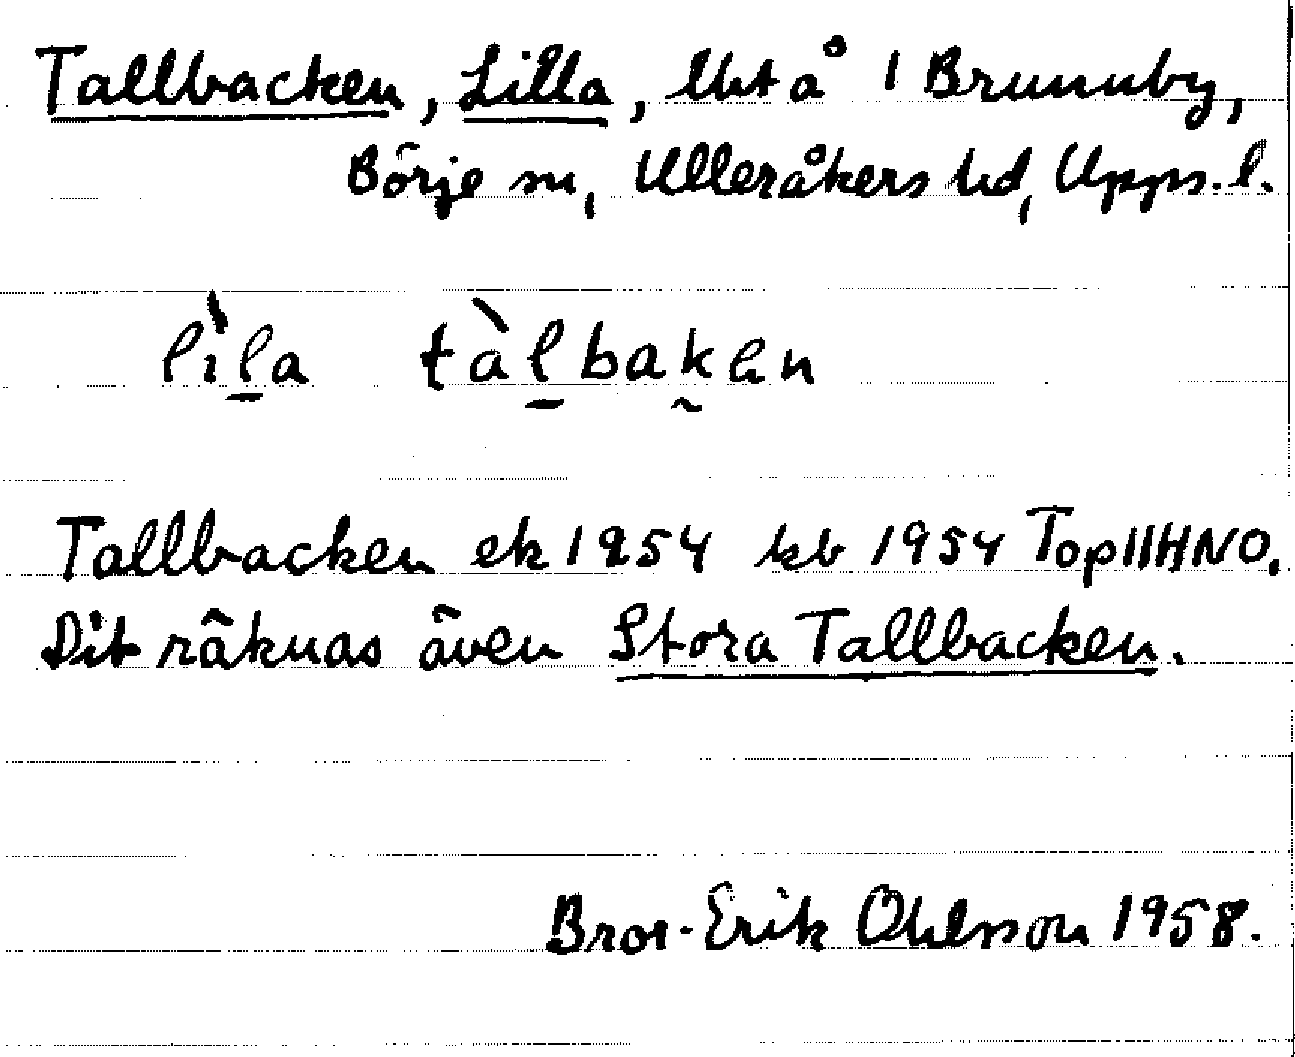 Tallbacken, Lilla, lht å 1 Brunnby,
Börje sn, Ulleråkers hd, Upps. l.
lìl̠a tàl̠bak̰en
Tallbacken ek 1954 kb 1954 Top 11HNO.
Dit räknas även Stora Tallbacken.
Bror-Erik Ohlsson 1958.